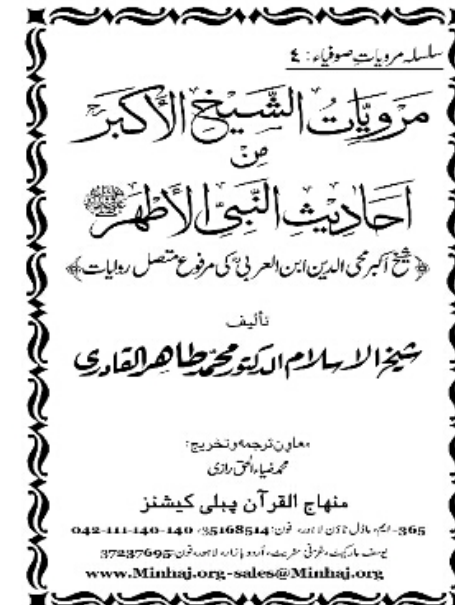 سلسلہ مرویاتِ صوفیاء : ٤
مَرْوِيَّاتُ الشَّيْخِ الْأَكْبَرِ
مِنْ
أَحَادِيْثِ النَّبِيِّ الْأَطْهَرِ ﷺ
﴿شیخ اکبر محی الدین ابن العربی کی مرفوع متصل روایات﴾
تأليف
شیخ الاسلام الدکتور محمد طاهر القادری
معاونِ ترجمہ و تخریج:
محمد ضیاء الحق رازی
منهاج القرآن پبلی کیشنز
365-ایم، ماڈل ٹاؤن لاہور، فون: 35168514، 042-111-140-140
یوسف مارکیٹ، غزنی سٹریٹ، اُردو بازار، لاہور، فون: 37237695
www.Minhaj.org-sales@Minhaj.org